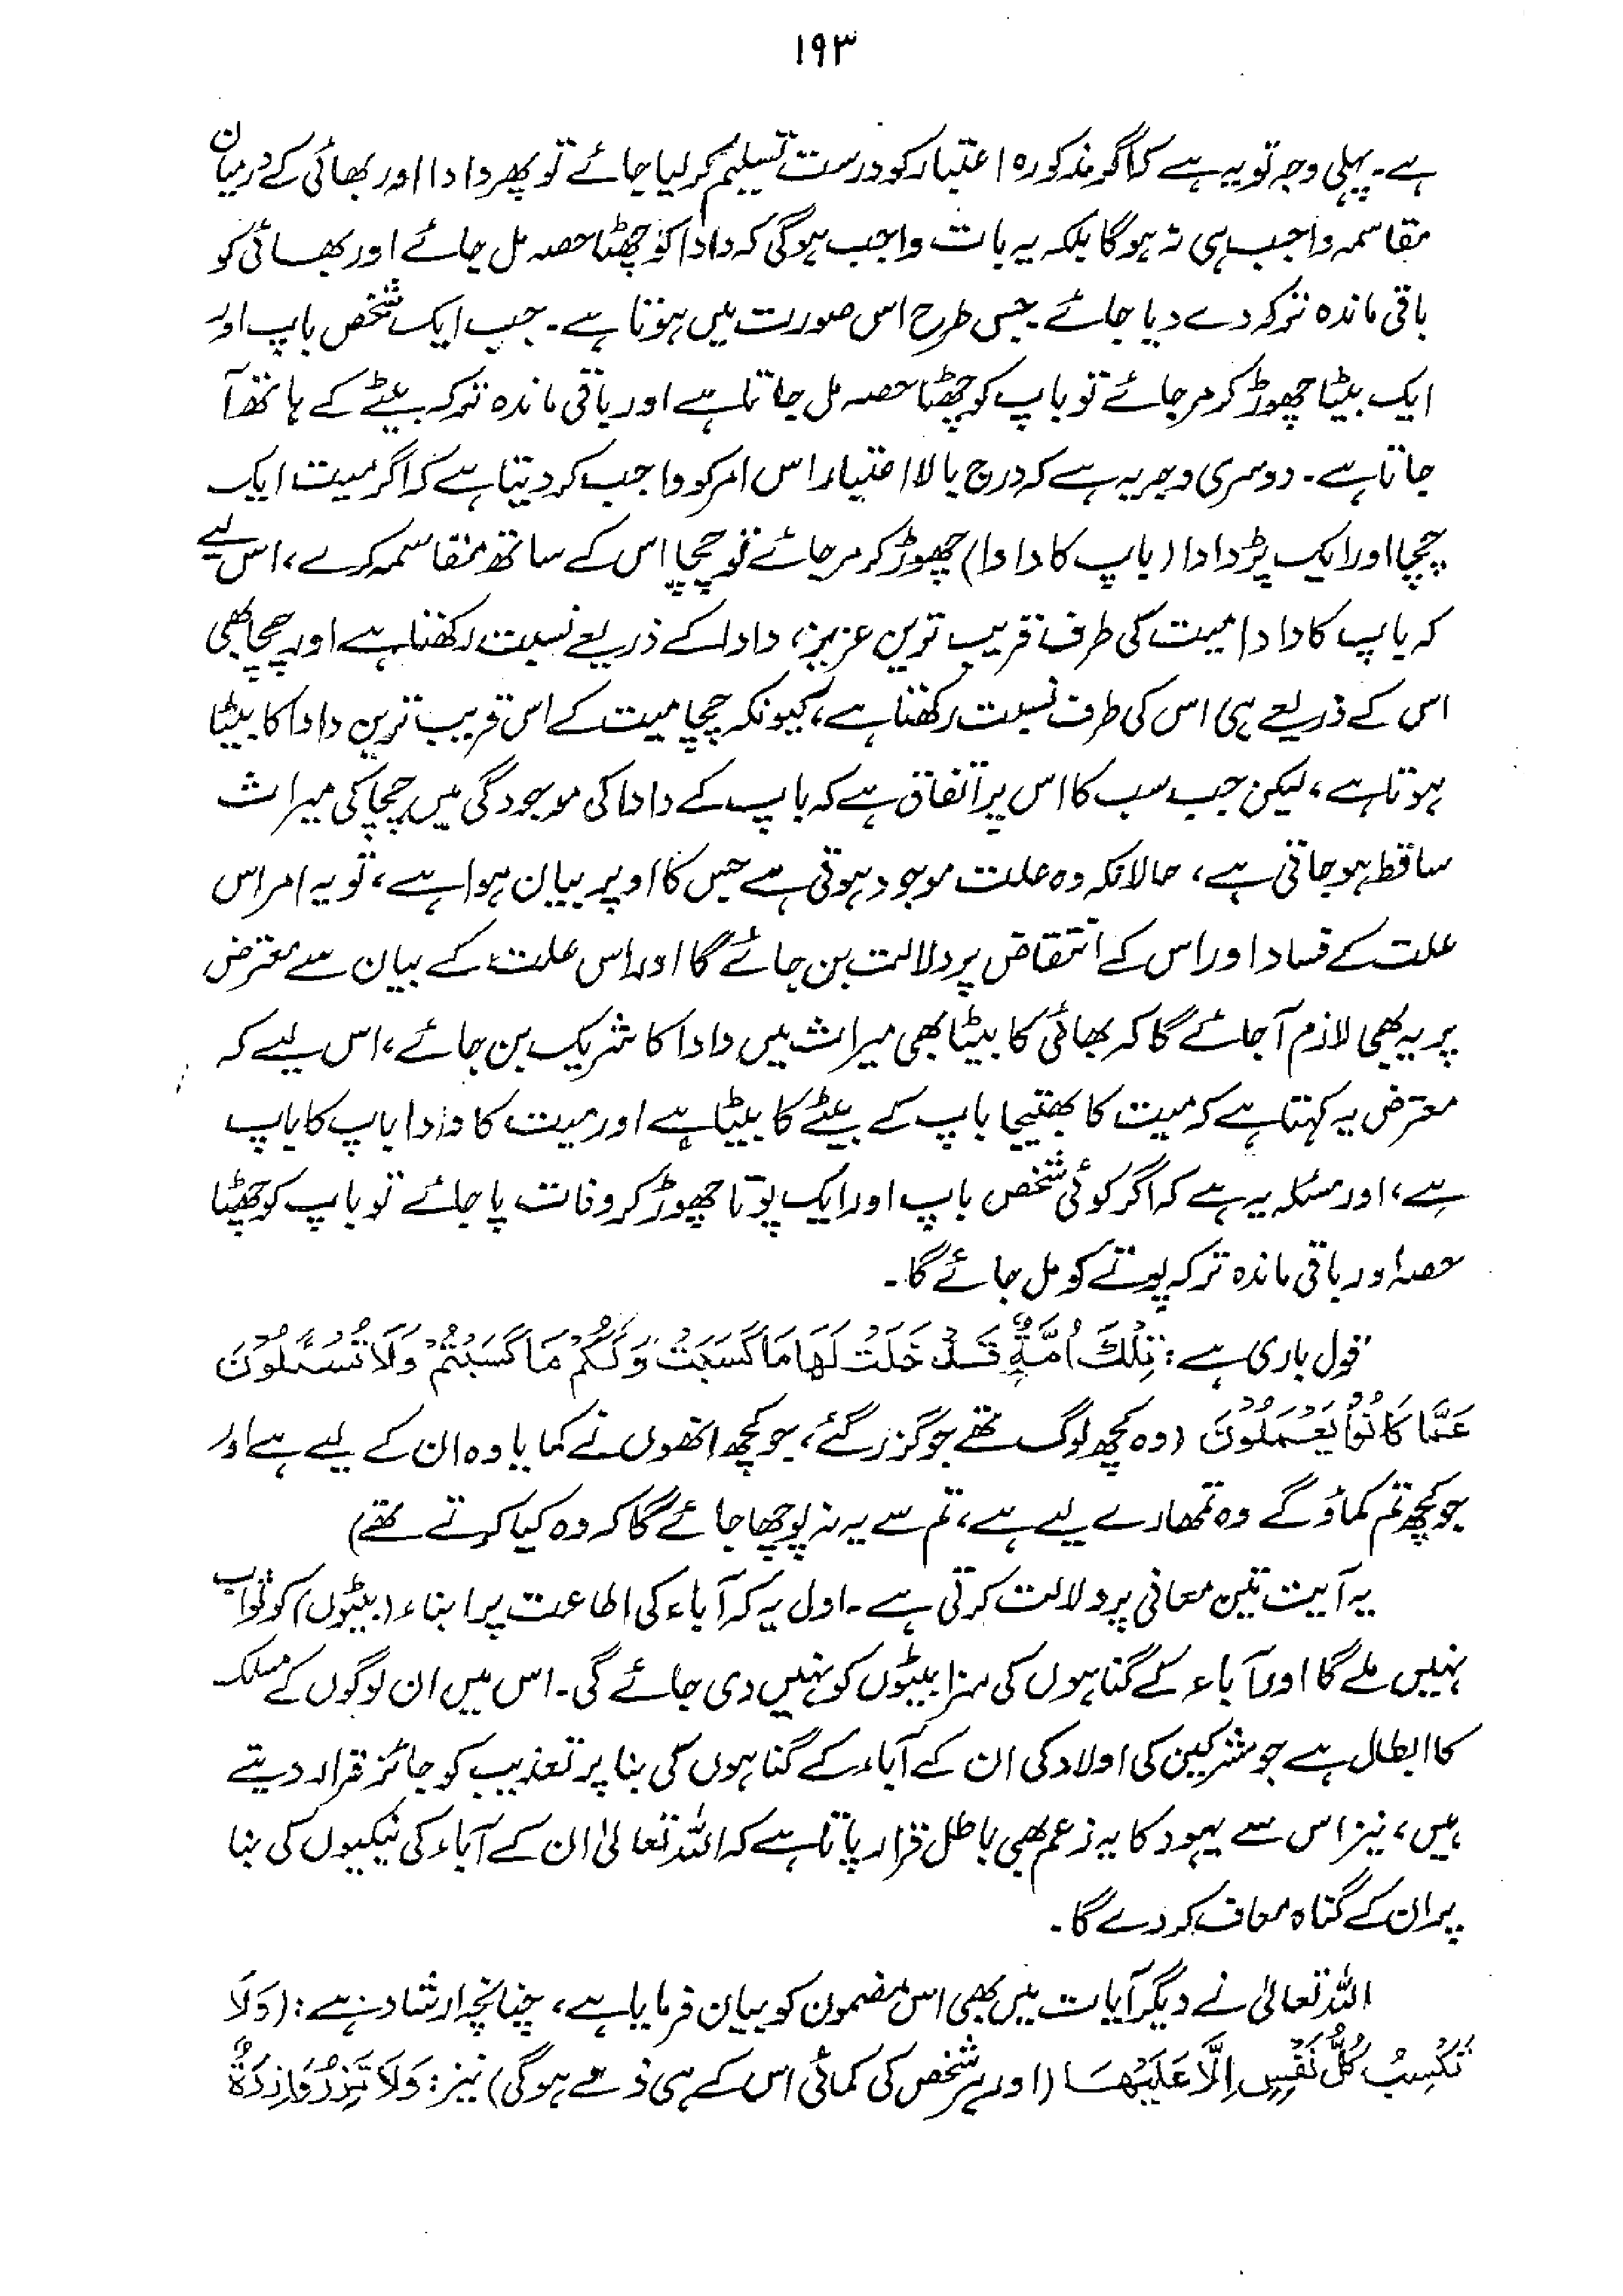 ۱۹۳
ہے۔ پہلی وجہ تو یہ ہے کہ اگر مذکورہ اعتبار کو درست تسلیم کر لیا جائے تو پھر دادا اور بھائی کے درمیان
مقاسمہ واجب ہی نہ ہوگا بلکہ یہ بات واجب ہوگی کہ دادا کو چھٹا حصہ مل جائے اور بھائی کو
باقی ماندہ ترکہ دے دیا جائے۔ جس طرح اس صورت میں ہوتا ہے۔ جب ایک شخص باپ اور
ایک بیٹا چھوڑ کر مر جائے تو باپ کو چھٹا حصہ مل جاتا ہے اور باقی ماندہ ترکہ بیٹے کے ہاتھ آ
جاتا ہے۔ دوسری وجہ یہ ہے کہ درج بالا اعتبار اس امر کو واجب کر دیتا ہے کہ اگر میت ایک
چچا اور ایک پڑدادا (باپ کا دادا) چھوڑ کر مر جائے تو چچا اس کے ساتھ مقاسمہ کرے، اس لیے
کہ باپ کا دادا میت کی طرف قریب ترین عزیز، دادا کے ذریعے نسبت رکھتا ہے اور چچا بھی
اس کے ذریعے ہی اس کی طرف نسبت رکھتا ہے، کیونکہ چچا میت کے اس قریب ترین دادا کا بیٹا
ہوتا ہے، لیکن جب سب کا اس پر اتفاق ہے کہ باپ کے دادا کی موجودگی میں چچا کی میراث
ساقط ہو جاتی ہے، حالانکہ وہ علت موجود ہوتی ہے جس کا اوپر بیان ہوا ہے، تو یہ امر اس
علت کے فساد اور اس کے انتقاض پر دلالت بن جائے گا اور اس علت کے بیان سے معترض
پر یہ بھی لازم آ جائے گا کہ بھائی کا بیٹا بھی میراث میں دادا کا شریک بن جائے، اس لیے کہ
معترض یہ کہتا ہے کہ میت کا بھتیجا باپ کے بیٹے کا بیٹا ہے اور میت کا دادا باپ کا باپ
ہے، اور مسئلہ یہ ہے کہ اگر کوئی شخص باپ اور ایک پوتا چھوڑ کر وفات پا جائے تو باپ کو چھٹا
حصہ اور باقی ماندہ ترکہ پوتے کو مل جائے گا۔
قول باری ہے: تِلْكَ اُمَّةٌ قَدْ خَلَتْ لَهَا مَا كَسَبَتْ وَلَكُمْ مَا كَسَبْتُمْ وَلَا تُسْئَلُوْنَ
عَمَّا كَانُوْا يَعْمَلُوْنَ (وہ کچھ لوگ تھے جو گزر گئے، جو کچھ انھوں نے کمایا وہ ان کے لیے ہے اور
جو کچھ تم کماؤ گے وہ تمھارے لیے ہے، تم سے یہ نہ پوچھا جائے گا کہ وہ کیا کرتے تھے)
یہ آیت تین معانی پر دلالت کرتی ہے۔ اول یہ کہ آباء کی اطاعت پر ابناء (بیٹوں) کو ثواب
نہیں ملے گا اور آباء کے گناہوں کی سزا بیٹوں کو نہیں دی جائے گی۔ اس میں ان لوگوں کے مسلک
کا ابطال ہے جو مشرکین کی اولاد کی ان کے آباء کے گناہوں کی بنا پر تعذیب کو جائز قرار دیتے
ہیں، نیز اس سے یہود کا یہ زعم بھی باطل قرار پاتا ہے کہ اللہ تعالیٰ ان کے آباء کی نیکیوں کی بنا
پر ان کے گناہ معاف کر دے گا۔
اللہ تعالیٰ نے دیگر آیات میں بھی اس مضمون کو بیان فرمایا ہے، چنانچہ ارشاد ہے: (وَلَا
تَكْسِبُ كُلُّ نَفْسٍ اِلَّا عَلَيْهَا (اور ہر شخص کی کمائی اس کے ہی ذمے ہوگی) نیز: وَلَا تَزِرُ وَازِرَةٌ